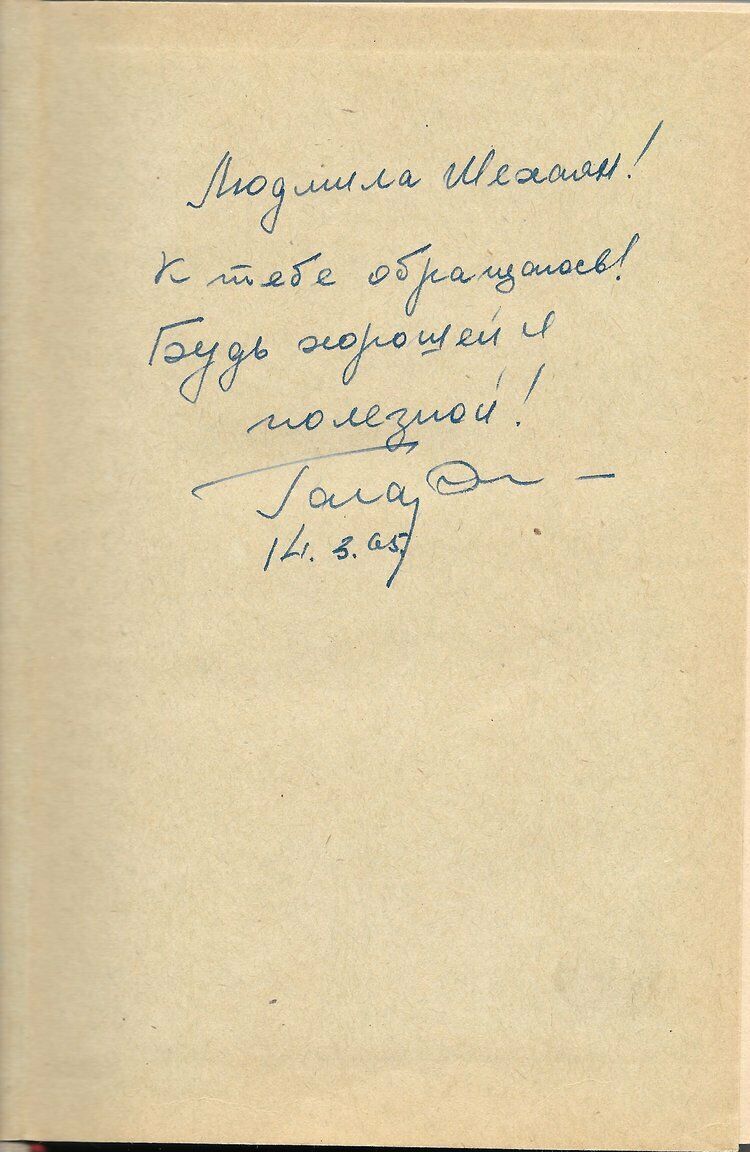 Людмила Шехаян!
К тебе обращаюсь!
Будь хорошей и
полезной!
14.3.65.